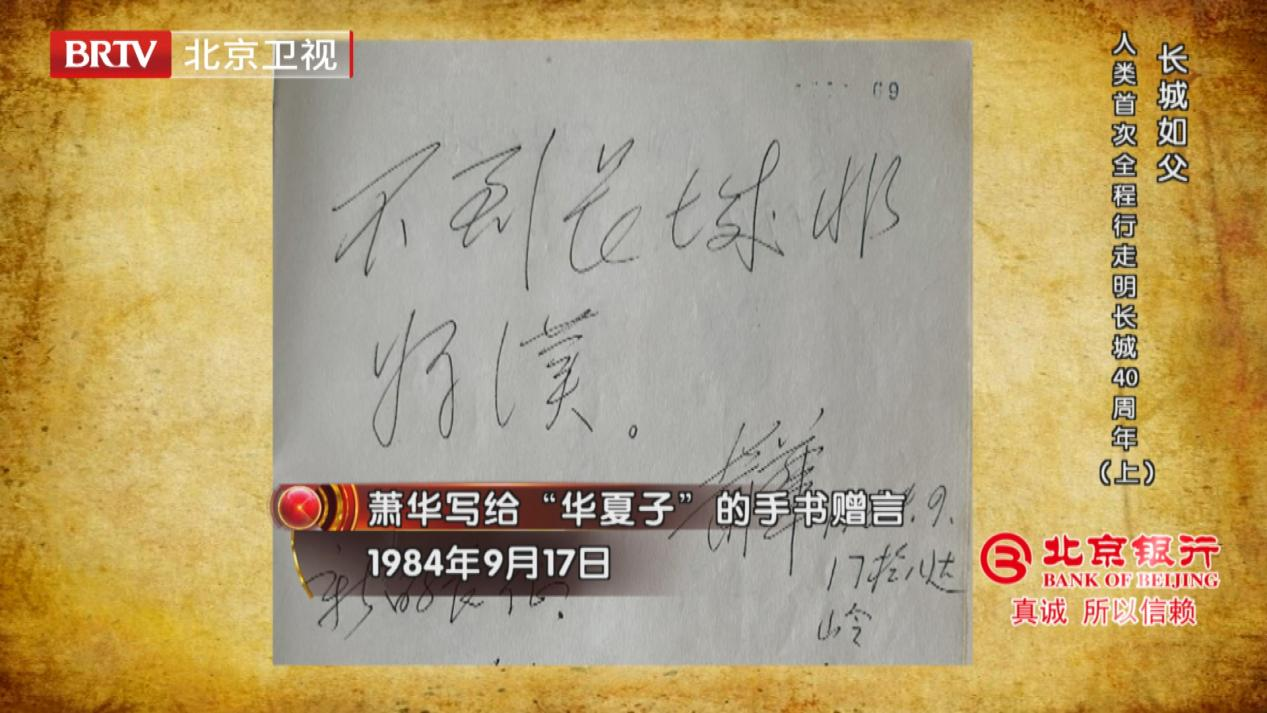 BRTV 北京卫视
长城如父
人类首次全程行走明长城40周年
(上)
69
不到长城非
好汉。
萧华
9.
17於八达
岭
萧华写给“华夏子”的手书赠言
1984年9月17日
北京银行
BANK OF BEIJING
真诚 所以信赖